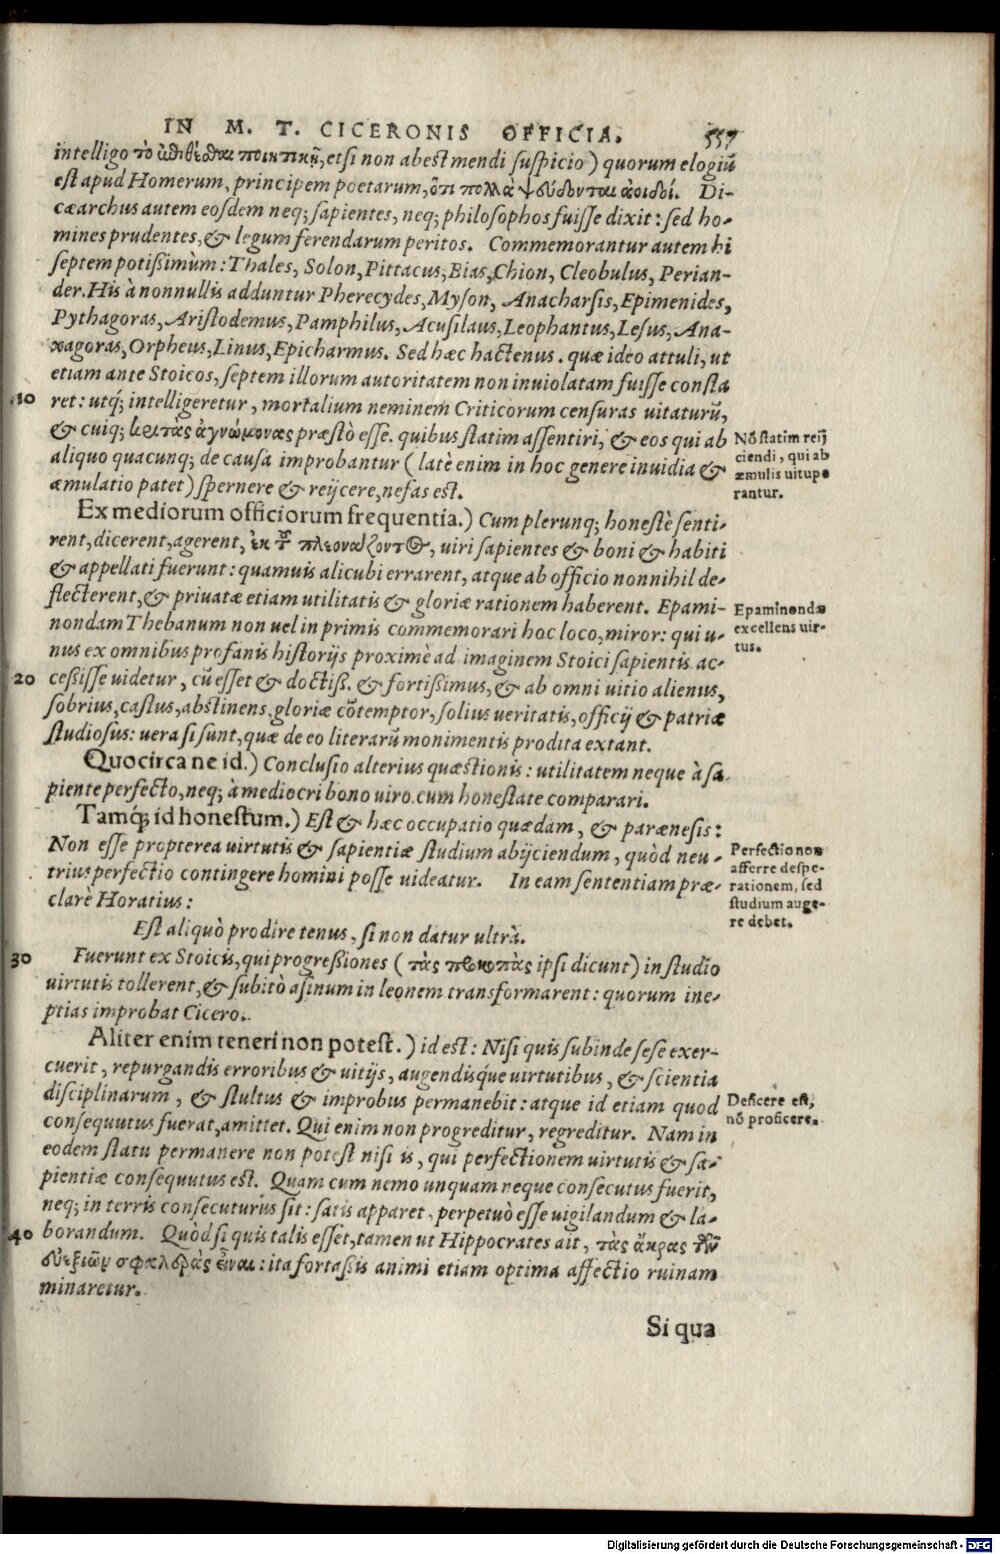 IN M. T. CICERONIS OFFICIA. 557
intelligo τὸ ποιητικῇ, etsi non abest mendi suspicio) quorum elogiũ
est apud Homerum, principem poetarum, ὅτι πολλὰ ψεύδονται ἀοιδοί. Di-
cæarchus autem eosdem neq; sapientes, neq; philosophos fuisse dixit: sed ho-
mines prudentes, & legum ferendarum peritos. Commemorantur autem hi
septem potißimùm: Thales, Solon, Pittacus, Bias, Chion, Cleobulus, Perian-
der. His à nonnullis adduntur Pherecydes, Myson, Anacharsis, Epimenides,
Pythagoras, Aristodemus, Pamphilus, Acusilaus, Leophantus, Lesus, Ana-
xagoras, Orpheus, Linus, Epicharmus. Sed hæc hactenus. quæ ideo attuli, ut
etiam ante Stoicos, septem illorum autoritatem non inuiolatam fuisse consta
10 ret: utq́; intelligeretur, mortalium neminem Criticorum censuras uitaturũ,
& cuiq; κριτὰς ἀγνώμονας præstò esse. quibus statim assentiri, & eos qui ab
aliquo quacunq; de causa improbantur (latè enim in hoc genere inuidia &
æmulatio patet) spernere & reijcere, nefas est.
Nõ statim reij
ciendi, qui ab
æmulis uitupe
rantur.
Ex mediorum officiorum frequentia.) Cum plerunq; honestè senti-
rent, dicerent, agerent, ἐκ τοῦ πλεονάζοντος, uiri sapientes & boni & habiti
& appellati fuerunt: quamuis alicubi errarent, atque ab officio nonnihil de-
flecterent, & priuatæ etiam utilitatis & gloriæ rationem haberent. Epami-
nondam Thebanum non uel in primis commemorari hoc loco, miror: qui u-
nus ex omnibus profanis historijs proximè ad imaginem Stoici sapientis ac-
20 ceßisse uidetur, cũ esset & doctiß. & fortißimus, & ab omni uitio alienus,
sobrius, castus, abstinens, gloriæ cõtemptor, solius ueritatis, officij & patriæ
studiosus: uera si sunt, quæ de eo literarũ monimentis prodita extant.
Epaminondæ
excellens uir-
tus.
Quocirca ne id.) Conclusio alterius quæstionis: utilitatem neque à sa
piente perfecto, neq; à mediocri bono uiro cum honestate comparari.
Tamq́; id honestum.) Est & hæc occupatio quædam, & parænesis:
Non esse propterea uirtutis & sapientiæ studium abijciendum, quòd neu-
trius perfectio contingere homini posse uideatur. In eam sententiam præ-
clarè Horatius:
Perfectio non
afferre despe-
rationem, sed
studium auge-
re debet.
Est aliquò prodire tenus, si non datur ultrà.
30 Fuerunt ex Stoicis, qui progreßiones (τὰς προκοπὰς ipsi dicunt) in studio
uirtutis tollerent, & subitò asinum in leonem transformarent: quorum ine-
ptias improbat Cicero.
Aliter enim teneri non potest.) id est: Nisi quis subinde sese exer-
cuerit, repurgandis erroribus & uitijs, augendisq́ue uirtutibus, & scientia
disciplinarum, & stultus & improbus permanebit: atque id etiam quod
consequutus fuerat, amittet. Qui enim non progreditur, regreditur. Nam in
eodem statu permanere non potest nisi is, qui perfectionem uirtutis & sa-
pientiæ consequutus est. Quam cum nemo unquam neque consecutus fuerit,
neq; in terris consecuturus sit: satis apparet, perpetuò esse uigilandum & la-
40 borandum. Quòd si quis talis esset, tamen ut Hippocrates ait, τὰς ἄκρας τῶν
εὐεξιῶν σφαλερὰς εἶναι: ita fortaßis animi etiam optima affectio ruinam
minaretur.
Deficere est,
nõ proficere.
Si qua
Digitalisierung gefördert durch die Deutsche Forschungsgemeinschaft - DFG